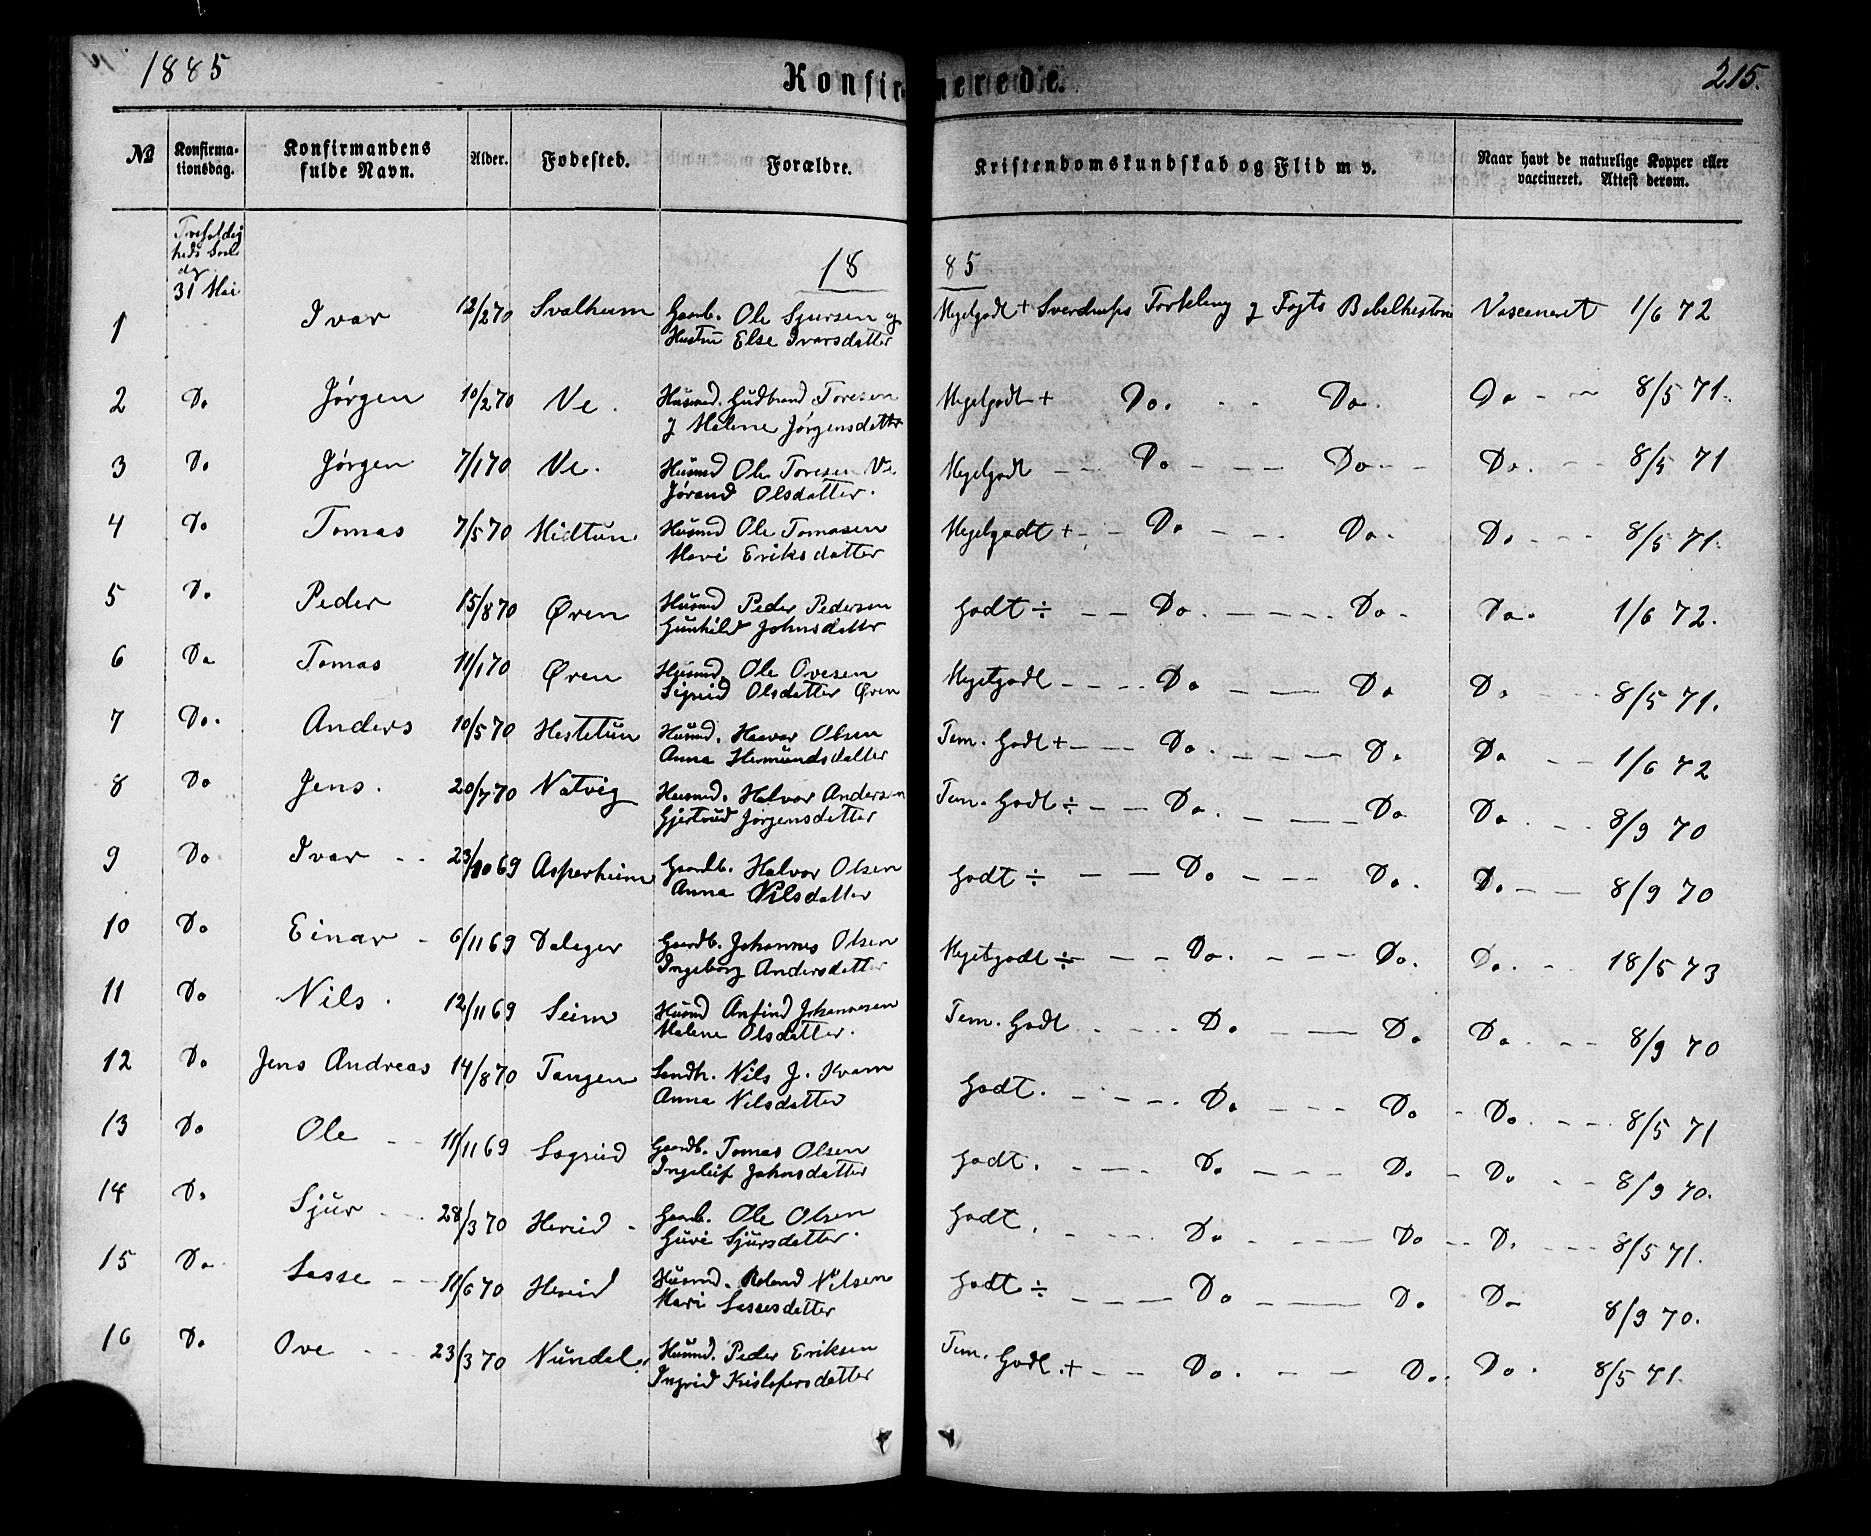 1885
Konfirmerede.
215.
№
Konfirma-
tionsdag.
Konfirmandens
fulde Navn.
Alder.
Fødested.
Forældre.
Kristendomskundskab og Flid m v.
Naar havt de naturlige Kopper eller
vaccineret. Attest derom.
Trefoldig
heds Son
dag
31 Mai
18 85
1 Ivar 12/2 70 Svalheim Gaardb. Ole Sjursen og Megetgodt + Sverdrups Forkling & Fogts Bibelhistorie Vaccineret 1/6 72
Hustru Else Ivarsdatter
2 Do Jørgen 10/2 70 Ve. Husmd. Gudbrand Toresen Megetgodt + Do. Do. Do 8/5 71.
& Malene Jørgensdatter
3 Do Jørgen 7/1 70 Ve. Husmd Ole Toresen Ve. Megetgodt Do Do Do. 8/5 71
Jørand Olsdatter.
4 Do Tomas 7/5 70 Midtun Husmd Ole Tomasen Megetgodt + Do Do. Do 8/5 71.
Mari Eriksdatter
5 Do Peder 15/8 70 Øren Husmd Peder Pedersen Godt ÷ Do. Do. Do. 1/6 72.
Gunhild Johnsdatter
6 Do Tomas 11/1 70 Øren Husmd. Ole Ovesen Megetgodt Do Do Do 8/5 71.
Sigrid Olsdatter Øren
7 Do. Anders 10/5 70 Hestetun Husmd. Haavar Olsen Tem. Godt + Do. Do Do 1/6 72
Anna Hermundsdatter
8 Do Jens. 20/7 70 Natvig Husmd. Halvor Andersen Tem. Godt ÷ Do. Do Do. 8/9 70
Gjertrud Jørgensdatter
9 Do Ivar 23/10 69 Asperheim Gaardb. Halvor Olsen Godt ÷ Do Do. Do. 8/9 70
Anna Nilsdatter
10 Do Einar 6/11 69 Dalager Gaardb. Johannes Olsen Megetgodt ÷ Do. Do. Do. 18/5 73
Ingeborg Andersdatter
11 Do Nils. 12/11 69 Seim Husmd Anfind Johannesen Tem. Godt Do Do Do. 8/9 70
Malene Olsdatter.
12 Do Jens Andreas 14/8 70 Tangen Landh. Nils J. Kvam Godt. Do Do Do. 8/5 71
Anna Nilsdatter
13 Do Ole 11/11 69 Løgrid Gaardb. Tomas Olsen Godt. Do Do Do 8/9 70.
Ingeleif Johnsdatter
14 Do Sjur 28/3 70 Hereid Gaardb. Ole Olsen Godt. Do Do Do 8/5 71.
Guri Sjursdatter.
15 Do Lasse 11/6 70 Hereid Husmd. Roland Nilsen Godt ÷ Do Do. Do 8/9 70.
Mari Lassesdatter
16 Do Ove 23/3 70 Nundal Husmd. Peder Eriksen Tem. Godt. + Do. Do. Do. 8/5 71.
Ingrid Kristofersdatter